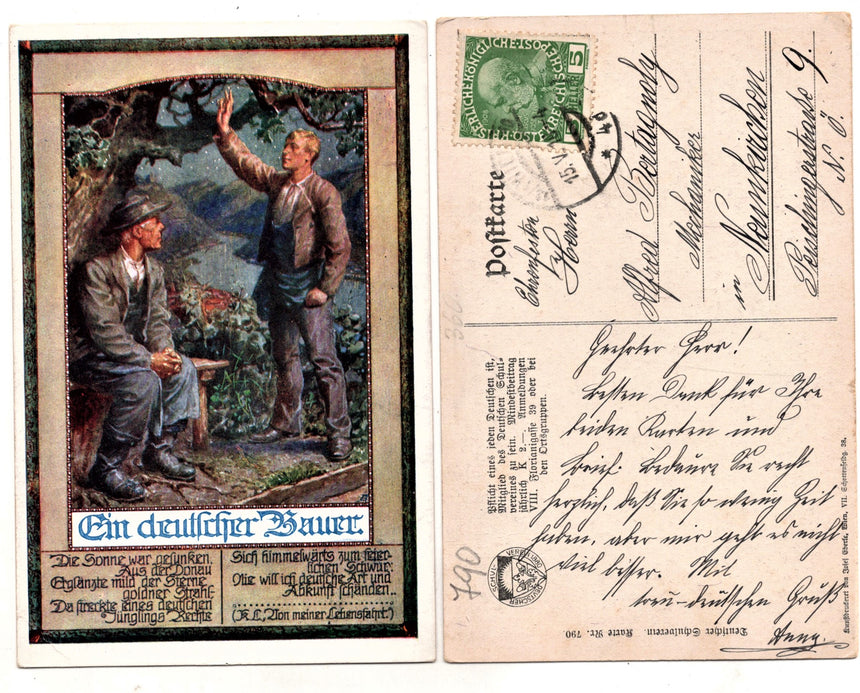 Ein deutscher Bauer.
Die Sonne war gesunken,
Aus der Donau
Erglänzte mild der Sterne
goldner Strahl-
Da streckte eines deutschen
Jünglings Rechte
Sich himmelwärts zum feier-
lichen Schwur:
Nie will ich deutsche Art und
Abkunft schänden..
(K.L., Von meiner Lebensfahrt.)
5
15.V.
Postkarte
Herrn
Alfred Bertagnoly
Mechaniker
in Neunkirchen
Peischingerstrasse 9.
N. Ö.
Pflicht eines jeden Deutschen ist,
Mitglied des Deutschen Schul-
vereines zu sein. Mindestbeitrag
jährlich K 2.—. Anmeldungen
VIII. Florianigasse 39 oder bei
den Ortsgruppen.
Geehrter Herr!
Besten Dank für Ihre
beiden Karten und
Brief. Bedaure Sie recht
herzlich, daß Sie so wenig Zeit
haben, aber mir geht es nicht
viel besser. Mit
treu-deutschen Gruß
790
Deutscher Schulverein. Karte Nr. 790
Kunstdruckerei von Josef Eberle, Wien, VII. Schottenfeldg. 38.